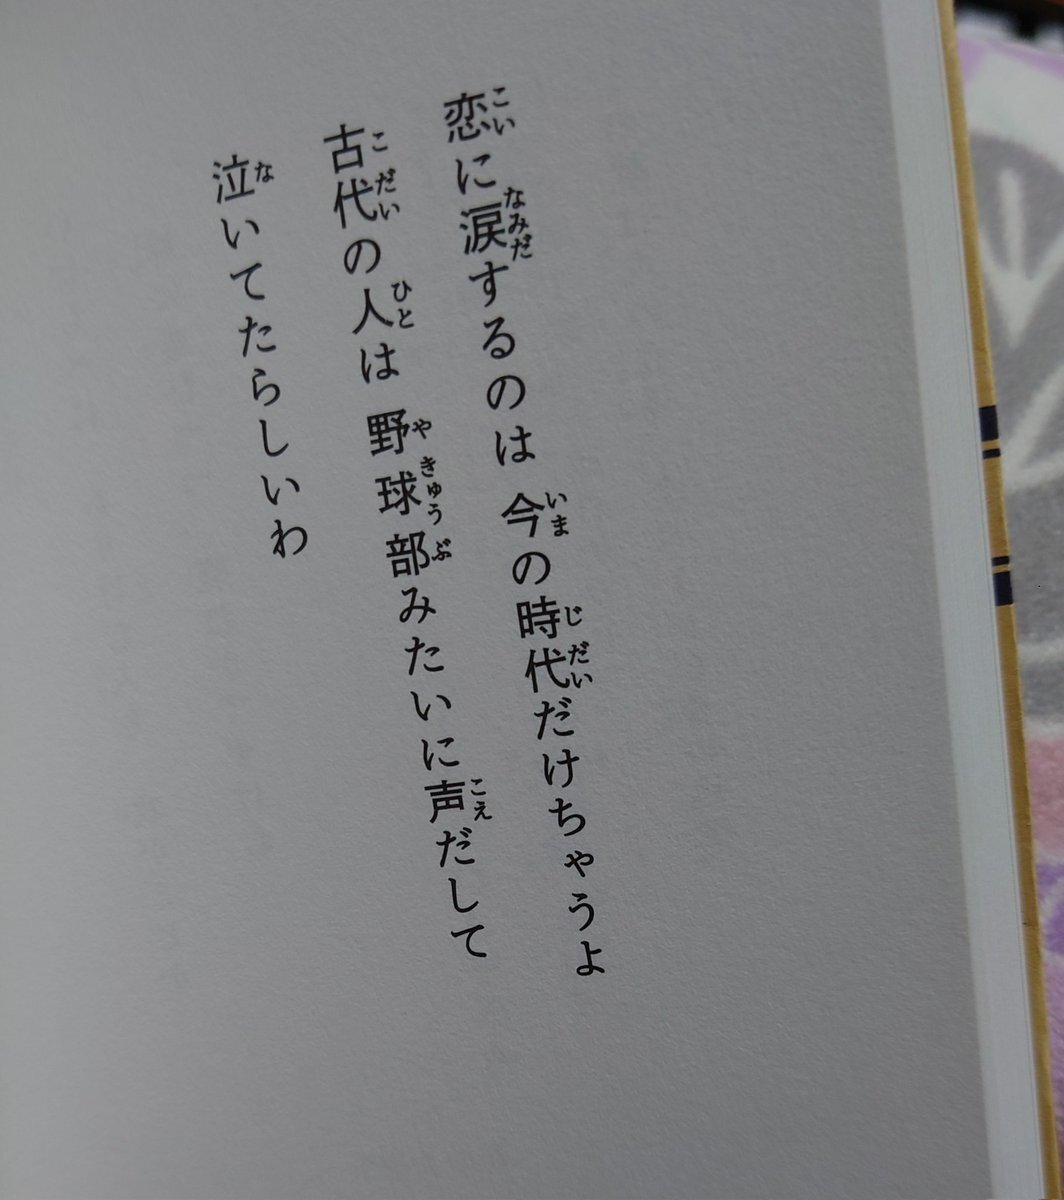 恋に涙するのは 今の時代だけちゃうよ
古代の人は 野球部みたいに声だして
泣いてたらしいわ